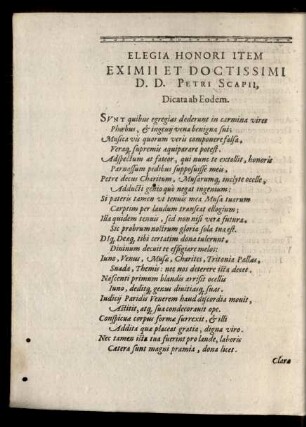 ELEGIA HONORI ITEM
EXIMII ET DOCTISSIMI
D. D. PETRI SCAPII,
Dicata ab Eodem.
SVNT quibus egregias dederunt in carmina vires
Phœbus, & ingenij vena benigna sui:
Musica vis quorum veris componere falsa,
Veraq́; supremis æquiparare potest.
Adspectum at fateor, qui nunc te extollit, honoris
Parnassum pedibus supposuisse meis.
Petre decus Charitum, Musarumq́; inclyte ocelle,
Adducti gesto quò negat ingenium:
Si pateris tamen vt tenuis mea Musa tuarum
Carptim per laudum transeat ellogium;
Illa quidem tenuis, sed non nisi vera futura.
Sic probrum nostrum gloria sola tua est.
Dîq́; Deæq́; tibi certatim dona tulerunt,
Diuinum decuit te effigiare melos:
Iuno, Venus, Musæ, Charites, Tritonia Pallas,
Suada, Themis: net nos deterere ista decet.
Nascenti primum blandis arrisit ocellis
Iuno, deditq́; genus diuitiasq́; suas.
Iudicij Paridis Venerem haud discordia mouit,
Astitit, atq́; sua condecorauit ope.
Conspicua corpus formæ surrexit, & illi
Addita quæ placeat gratia, digna viro.
Nec tamen ista tua fuerint pro laude, laboris
Cætera sunt magni præmia, dona licet.
Clara